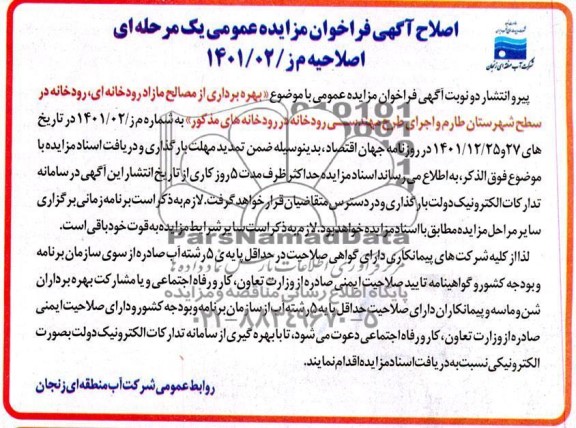 اصلاح آگهی فراخوان مزایده عمومی یک مرحله ای
اصلاحیه م ز/۱۴۰۱/۰۲
شرکت آب منطقه ای زنجان
پیرو انتشار دو نوبت آگهی فراخوان مزایده عمومی با موضوع «بهره برداری از مصالح مازاد رودخانه ای، رودخانه در
سطح شهرستان طارم و اجرای طرح مهندسی رودخانه در رودخانه های مذکور» به شماره م ز/۱۴۰۱/۰۲ در تاریخ
های ۲۷و۱۴۰۱/۱۲/۲۵ در روزنامه جهان اقتصاد، بدینوسیله ضمن تمدید مهلت بارگذاری و دریافت اسناد مزایده با
موضوع فوق الذکر، به اطلاع می رساند اسناد مزایده حداکثر ظرف مدت ۵ روز کاری از تاریخ انتشار این آگهی در سامانه
تدارکات الکترونیک دولت بارگذاری و در دسترس متقاضیان قرار خواهد گرفت. لازم به ذکر است برنامه زمانی برگزاری
سایر مراحل مزایده مطابق با اسناد مزایده خواهد بود. لازم به ذکر است سایر شرایط مزایده به قوت خود باقی است.
ParsNamadData
لذا از کلیه شرکت های پیمانکاری دارای گواهی صلاحیت در حداقل پایه ی ۵ رشته آب صادره از سوی سازمان برنامه
و بودجه کشور و گواهینامه تایید صلاحیت ایمنی صادره از وزارت تعاون، کار و رفاه اجتماعی و یا مشارکت بهره برداران
پایگاه اطلاع رسانی مناقصه و مزایده
شن و ماسه و پیمانکاران دارای صلاحیت حداقل پایه ۵ رشته آب از سازمان برنامه و بودجه کشور و دارای صلاحیت ایمنی
۰۲۱-۸۸۳۴۹۶۷۰-۵
صادره از وزارت تعاون، کار و رفاه اجتماعی دعوت می شود، تا با بهره گیری از سامانه تدارکات الکترونیک دولت بصورت
الکترونیکی نسبت به دریافت اسناد مزایده اقدام نمایند.
روابط عمومی شرکت آب منطقه ای زنجان